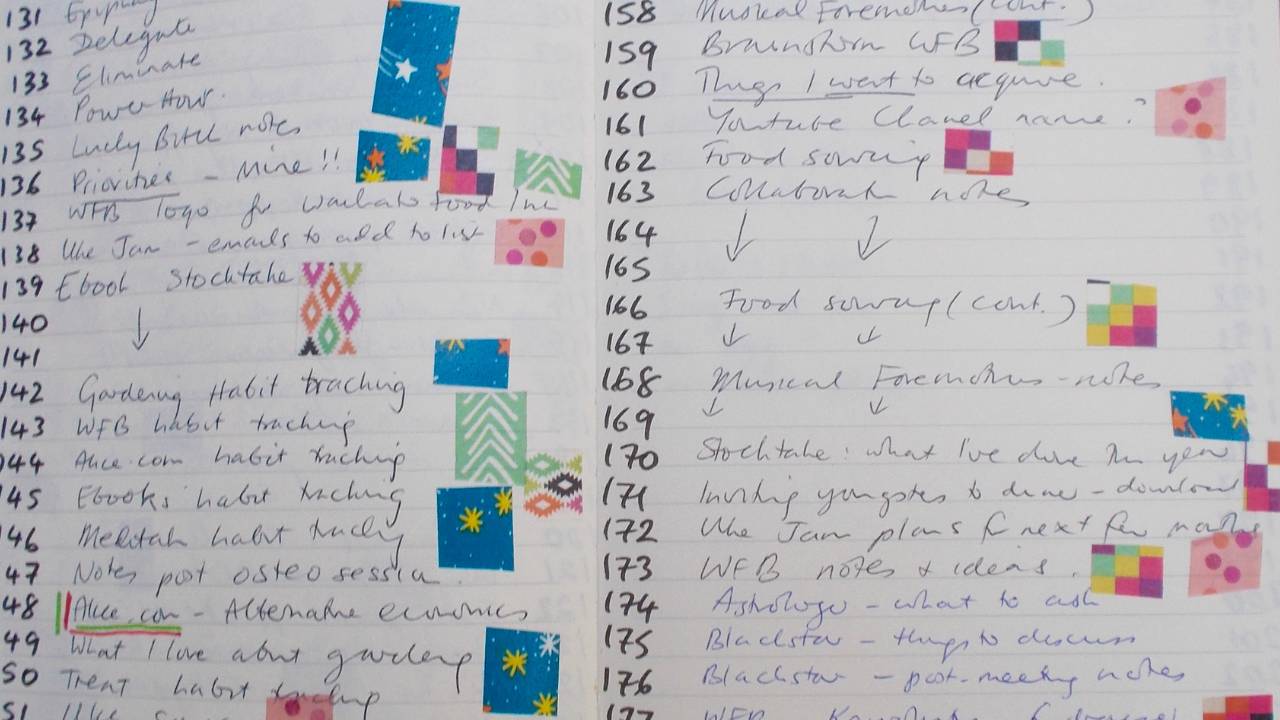 131 Epiphany
132 Delegate
133 Eliminate
134 Power Hour.
135 Lucky Bitch notes
136 Priorities - Mine!!
137 WFB logo for Waikato Food Inc
138 Uke Jam - emails to add to list
139 Ebook Stocktake
140 ↓
141
142 Gardening Habit tracking
143 WFB habit tracking
144 Alice.com habit tracking
45 Ebooks habit tracking
46 Meditation habit tracking
47 Notes post osteo session.
48 Alice.com - Alternative economics
49 What I love about gardening
50 Treat habit tracking
51 Uke
158 Musical Foremothers (cont.)
159 Brainstorm WFB
160 Things I want to acquire.
161 Youtube Channel name?
162 Food sourcing
163 Collaboration notes
164 ↓ ↓
165
166 Food sourcing (cont.)
167 ↓ ↓
168 Musical Foremothers - notes
169 ↓ ↓
170 Stocktake: what I've done this year
171 Inviting youngsters to draw - download
172 Uke Jam plans for next few months
173 WFB notes + ideas.
174 Astrologer - what to ask
175 Blackstar - things to discuss
176 Blackstar - post-meeting notes
177 WFB